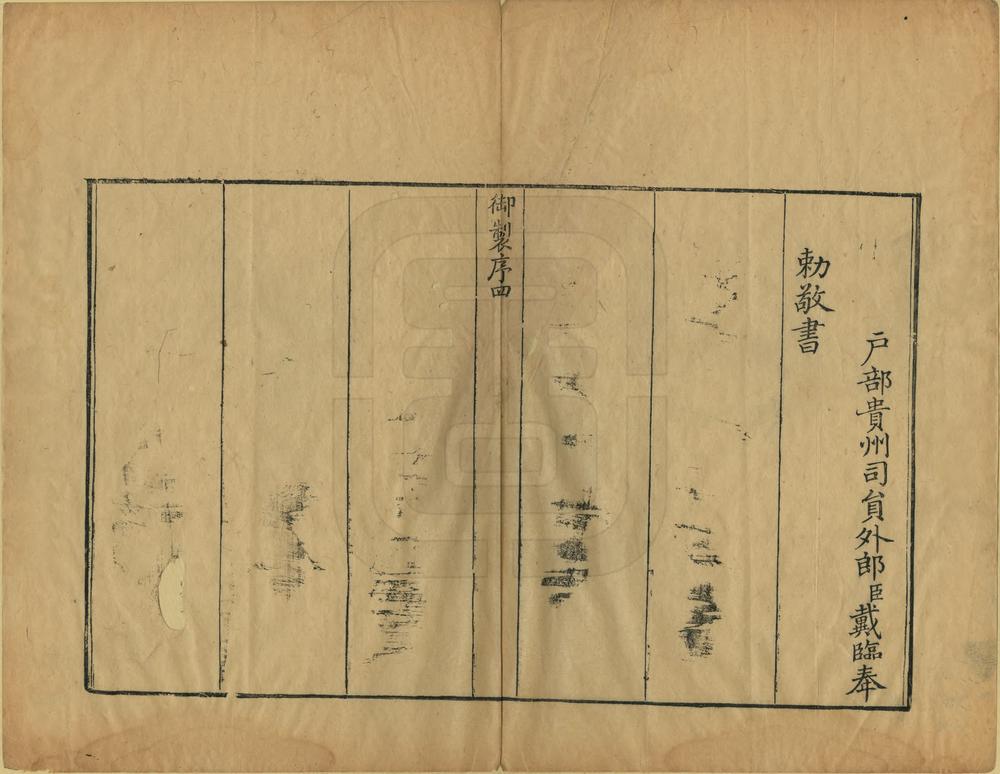 戸部貴州司貟外郎臣戴臨奉
勅敬書
御製序四